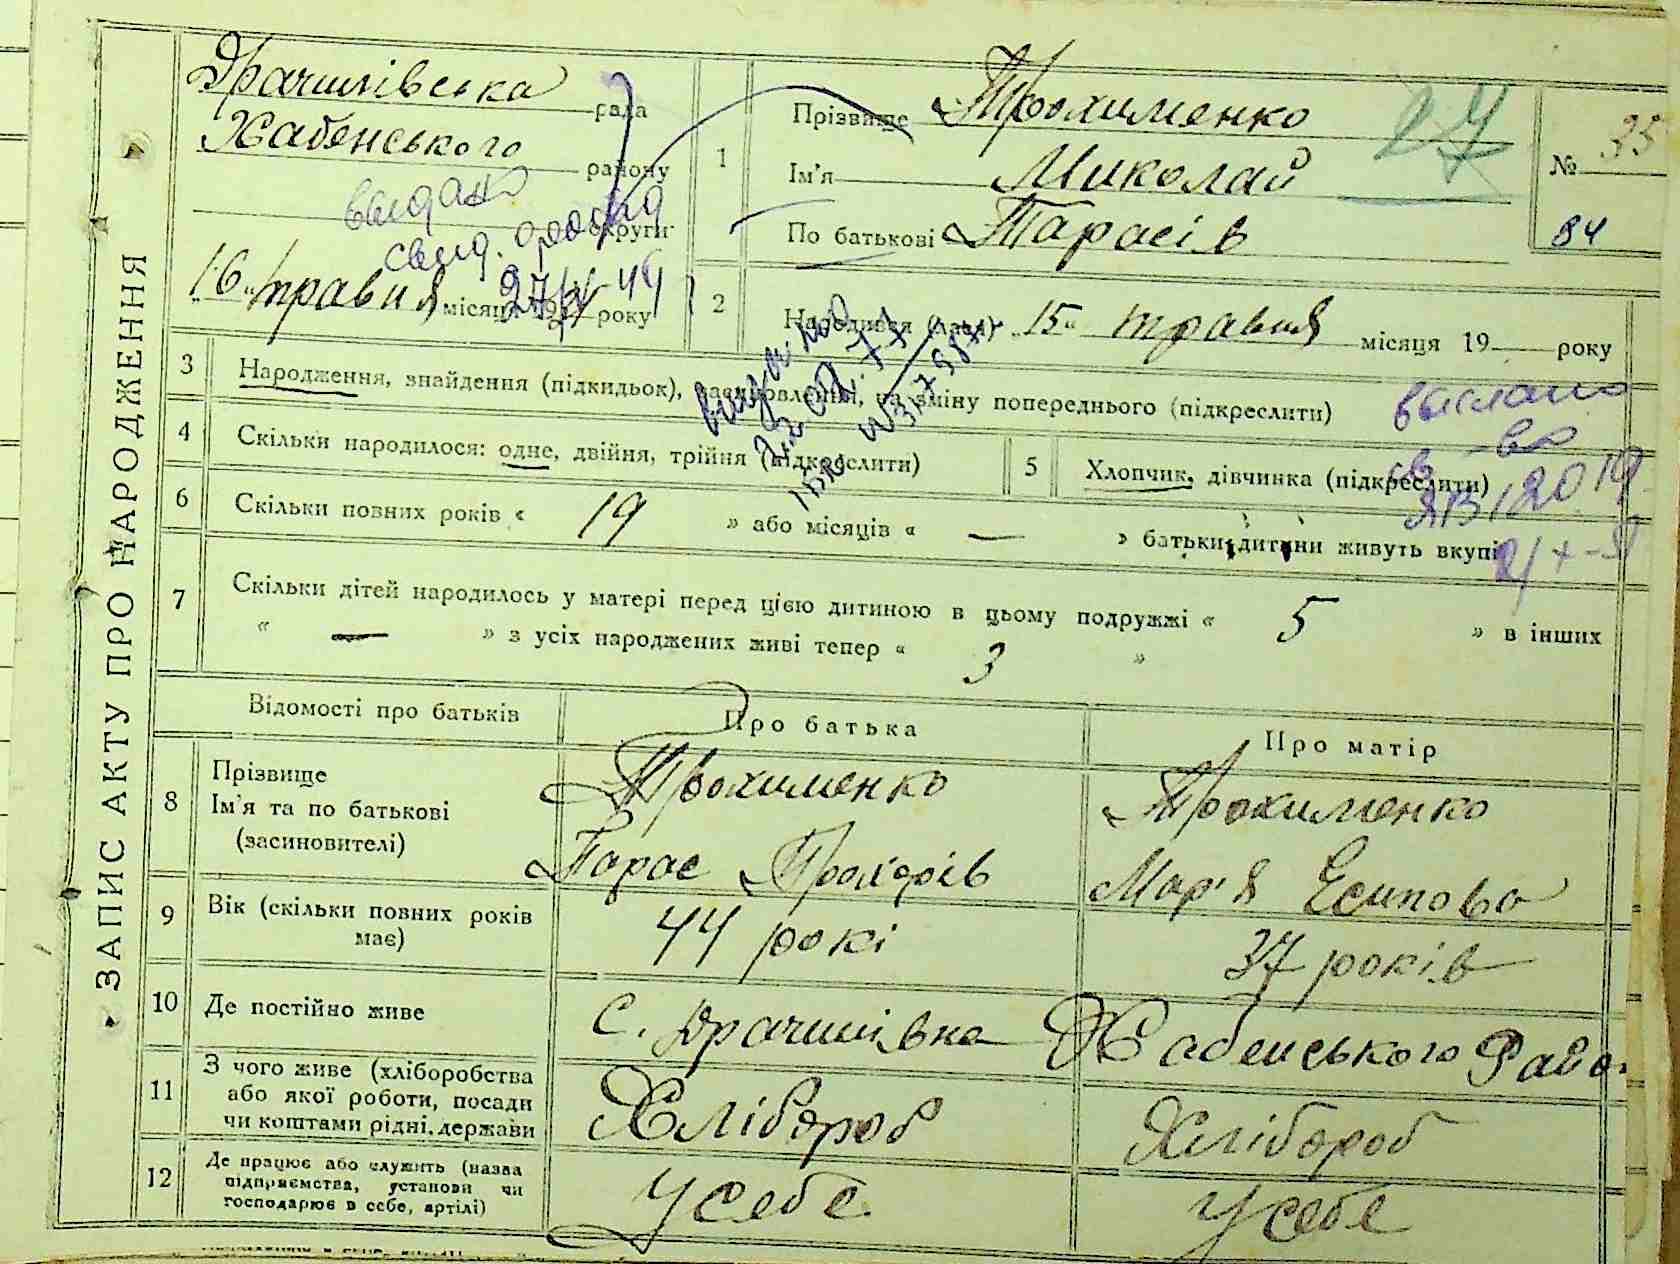 ЗАПИС АКТУ ПРО НАРОДЖЕННЯ
Драчилівська рада
Хабенського району
округи
видано
свид.
„16" травня місяця 19 року
1
Прізвище Трохименко
Ім'я Миколай
По батькові Тарасів
27
№ 35
84
2
Народився (лась) „15" травня місяця 19 року
3
Народження, знайдення (підкидьок), усиновлення, на зміну попереднього (підкреслити)
4
Скільки народилося: одне, двійня, трійня (підкреслити)
5
Хлопчик, дівчинка (підкреслити)
6
Скільки повних років « 19 » або місяців « — » батьки дитини живуть вкупі
7
Скільки дітей народилось у матері перед цією дитиною в цьому подружжі « 5 » в інших
« — » з усіх народжених живі тепер « 3 »
Відомості про батьків
Про батька
Про матір
8
Прізвище
Ім'я та по батькові
(засиновителі)
Трохименко
Тарас Прохорів
Трохименко
Мар'я Есипова
9
Вік (скільки повних років
має)
44 рокі
37 років
10
Де постійно живе
с. Драчилівка Хабенського Райо.
11
З чого живе (хліборобства
або якої роботи, посади
чи коштами рідні, держави
Хлібороб
Хлібороб
12
Де працює або служить (назва
підприємства, установи чи
господарює в себе, артілі)
У себе
У себе